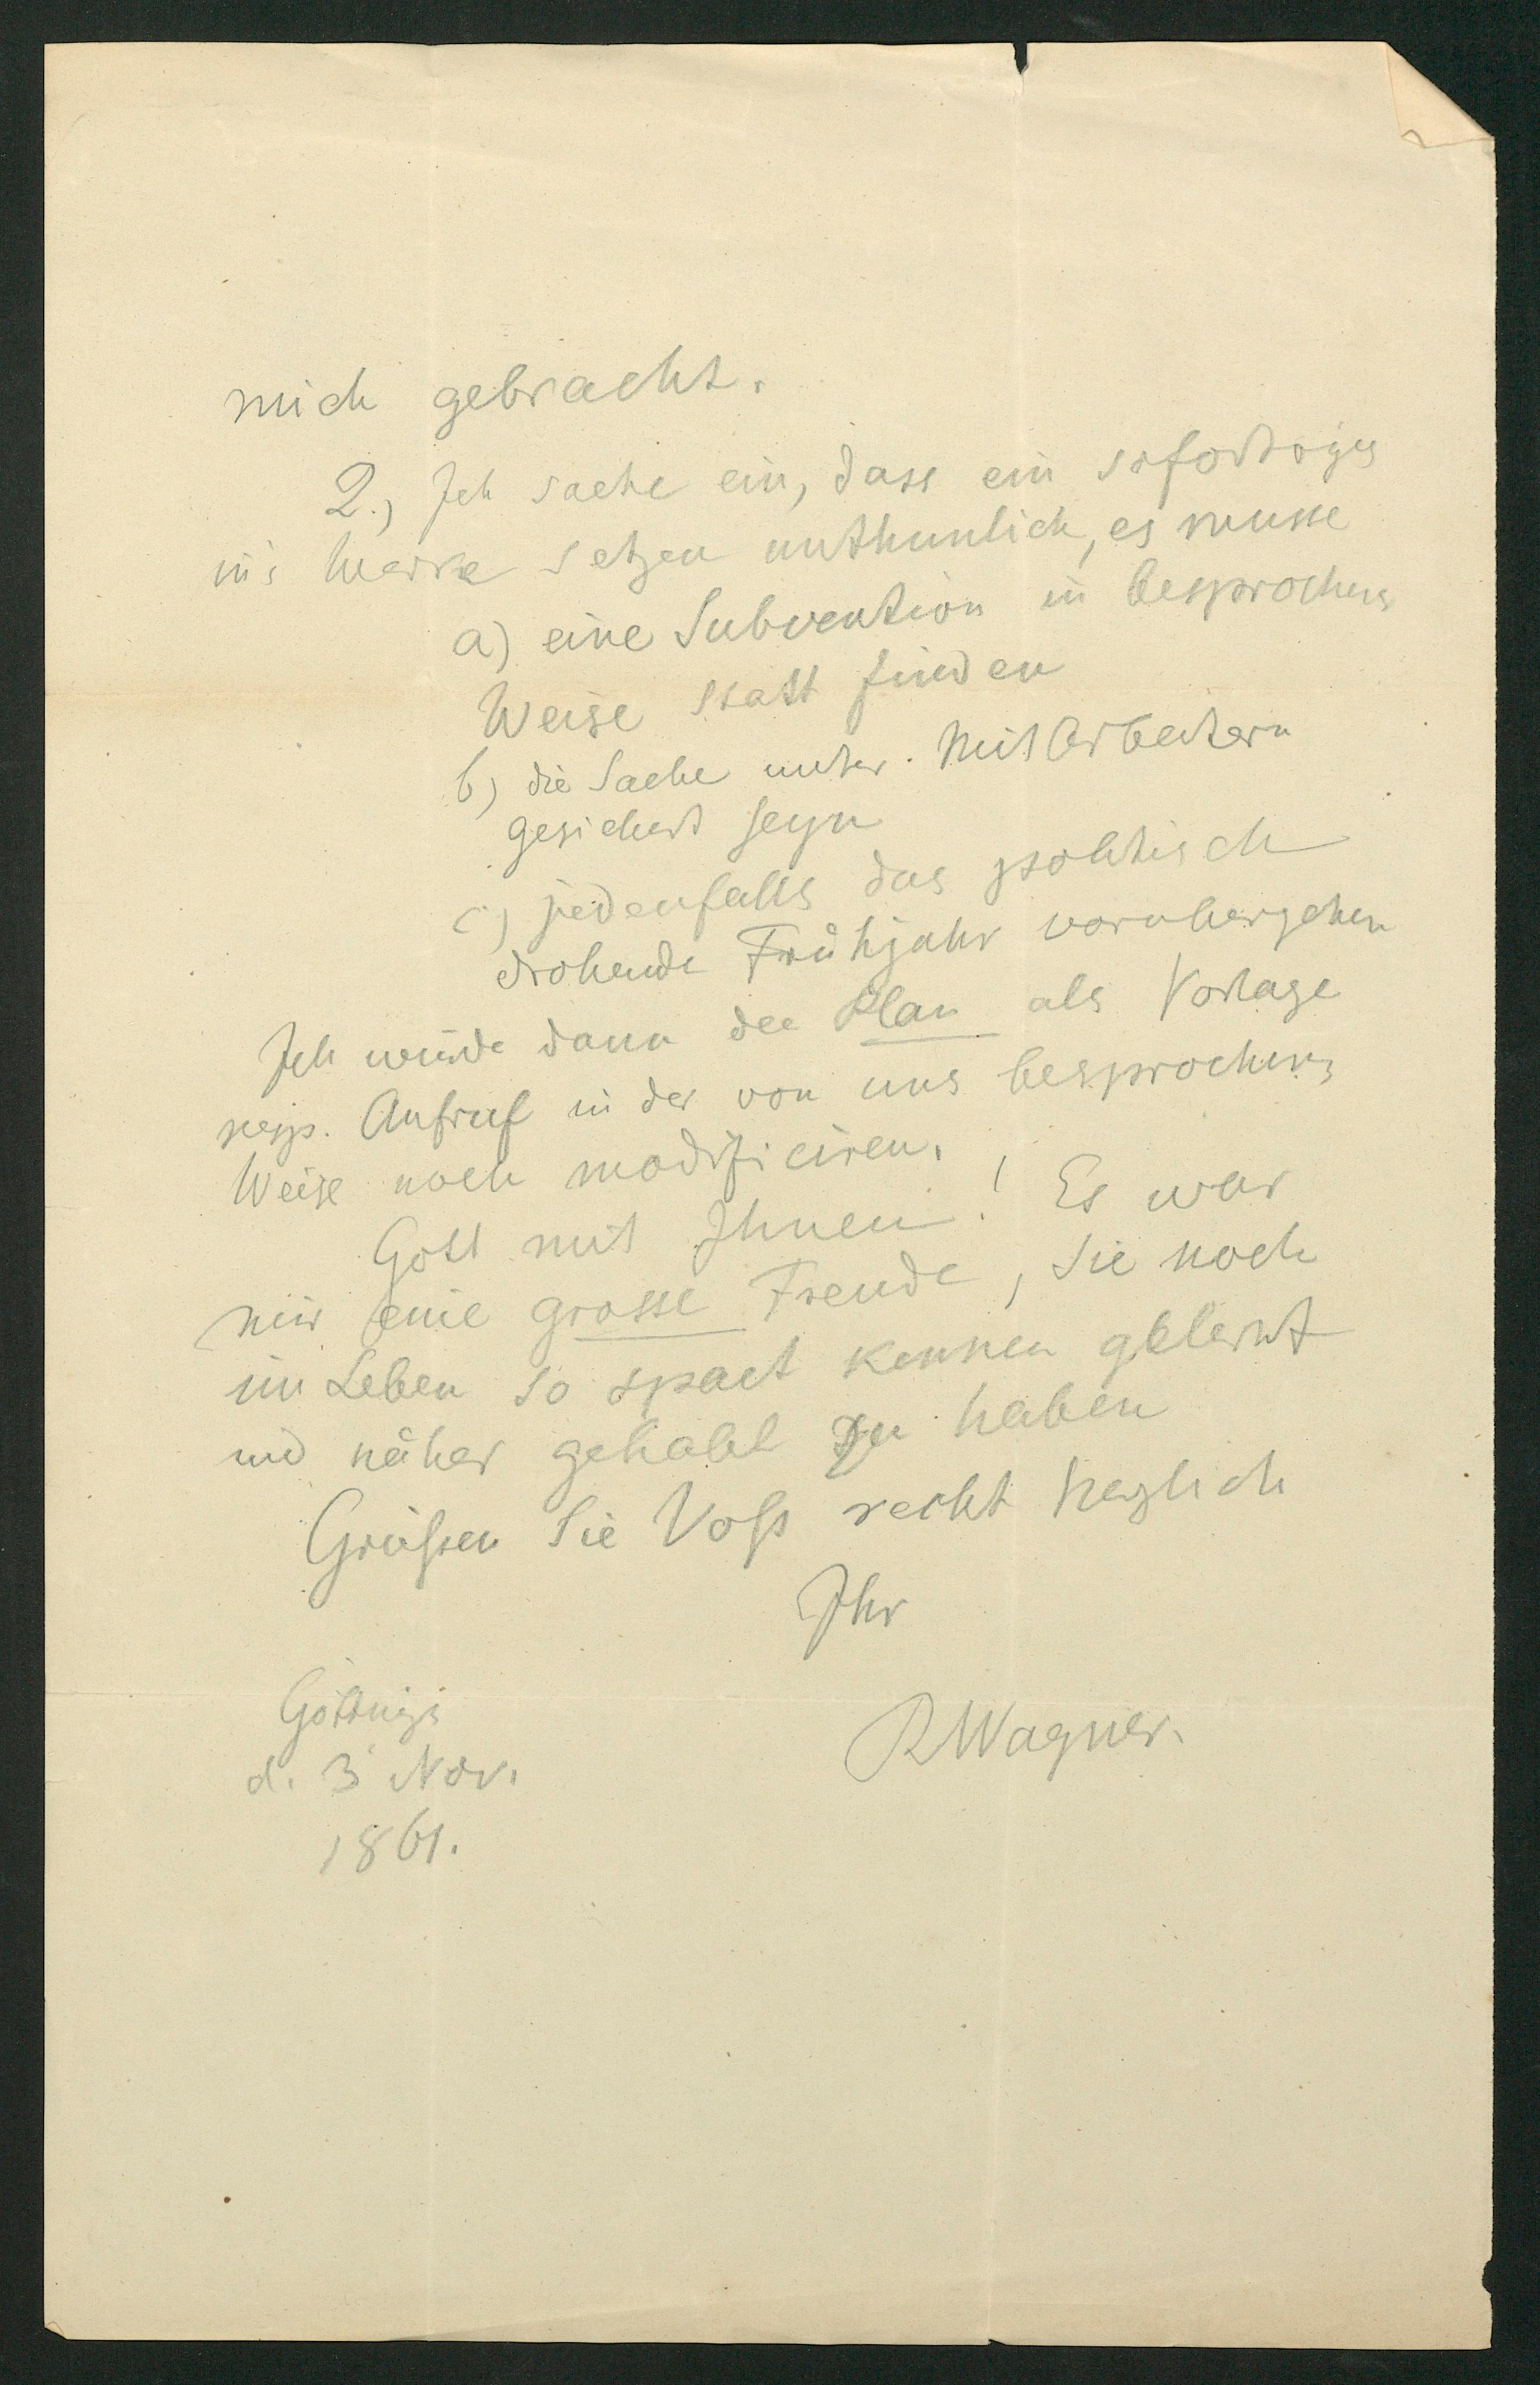 mich gebracht.
2., Ich saehe ein, dass ein sofortiges
in's Werke setzen unthunlich, es musse
a) eine Subvention in besprochene
Weise statt finden
b) die Sache unter. Mitarbeitern
gesichert seyn
c) jedenfalls das politisch
drohende Frühjahr vorubergehen
Ich würde dann den Plan als Vorlage
resp. Aufruf in der von uns besprochen
Weise noch modificiren.
Gott mit Ihnen! Es war
mir eine grosse Freude, Sie noch
im Leben so spaet kennen gelernt
und näher gehabt zu haben
Grüßen Sie Voß recht herzlich
Ihr
Göttingen
RWagner.
d. 3 Nov.
1861.